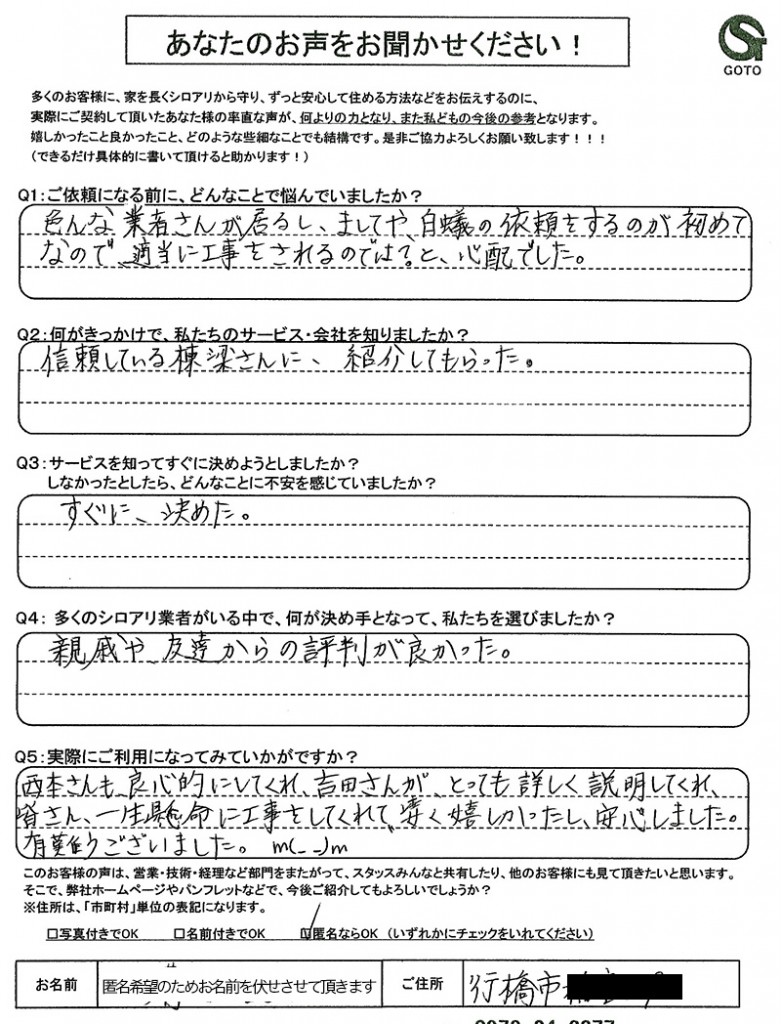 あなたのお声をお聞かせください！
GOTO
多くのお客様に、家を長くシロアリから守り、ずっと安心して住める方法などをお伝えするのに、
実際にご契約して頂いたあなた様の率直な声が、何よりの力となり、また私どもの今後の参考となります。
嬉しかったこと良かったこと、どのような些細なことでも結構です。是非ご協力よろしくお願い致します！！！
（できるだけ具体的に書いて頂けると助かります！）
Q1：ご依頼になる前に、どんなことで悩んでいましたか？
色んな業者さんが居るし、ましてや、白蟻の依頼をするのが初めて
なので、適当に工事をされるのでは？と、心配でした。
Q2：何がきっかけで、私たちのサービス・会社を知りましたか？
信頼している棟梁さんに、紹介してもらった。
Q3：サービスを知ってすぐに決めようとしましたか？
しなかったとしたら、どんなことに不安を感じていましたか？
すぐに、決めた。
Q4： 多くのシロアリ業者がいる中で、何が決め手となって、私たちを選びましたか？
親戚や、友達からの評判が良かった。
Q5：実際にご利用になってみていかがですか？
西本さんも、良心的にしてくれ、吉田さんが、とっても詳しく説明してくれ、
皆さん、一生懸命に工事をしてくれて、凄く嬉しかったし、安心しました。
有難うございました。 m(_ _)m
このお客様の声は、営業・技術・経理など部門をまたがって、スタッスみんなと共有したり、他のお客様にも見て頂きたいと思います。
そこで、弊社ホームページやパンフレットなどで、今後ご紹介してもよろしいでしょうか？
※住所は、「市町村」単位の表記になります。
□写真付きでOK □名前付きでOK ☑匿名ならOK （いずれかにチェックをいれてください）
お名前 匿名希望のためお名前を伏せさせて頂きます ご住所 行橋市